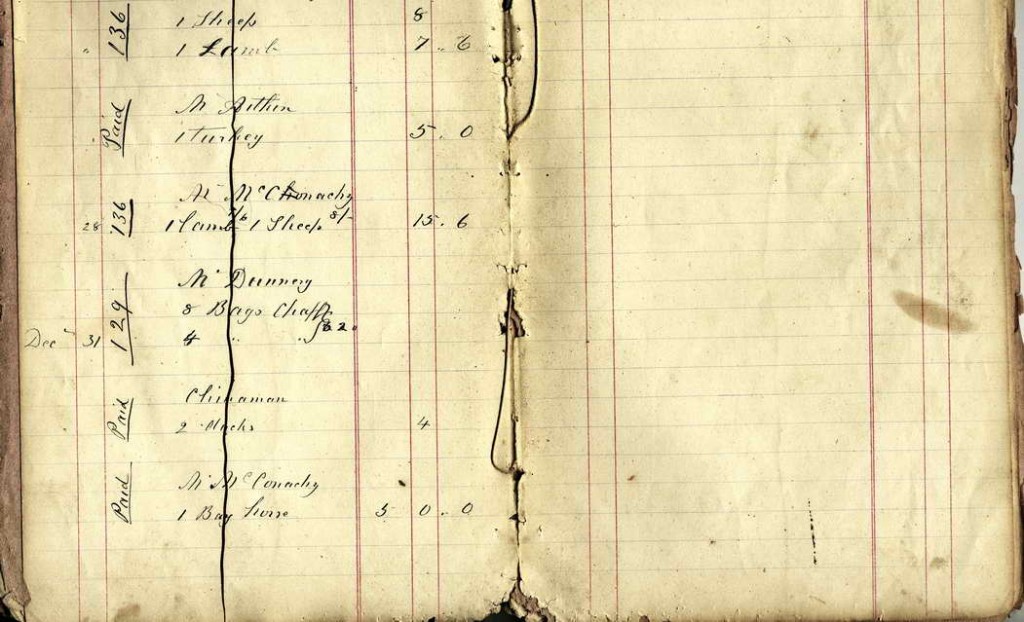 136 1 Sheep 8
" 1 Lamb 7 .. 6
Mr Aitkin
Paid 1 turkey 5 . 0
Mr McConachy
28 136 1 lamb 7/6 1 Sheep 8/- 15 . 6
Mr Dunnery
129 8 Bags Chaff
Dec 31 4 " "
Chinaman
Paid 2 ducks 4
Mr McConachy
Paid 1 Bay horse 5 0 .. 0